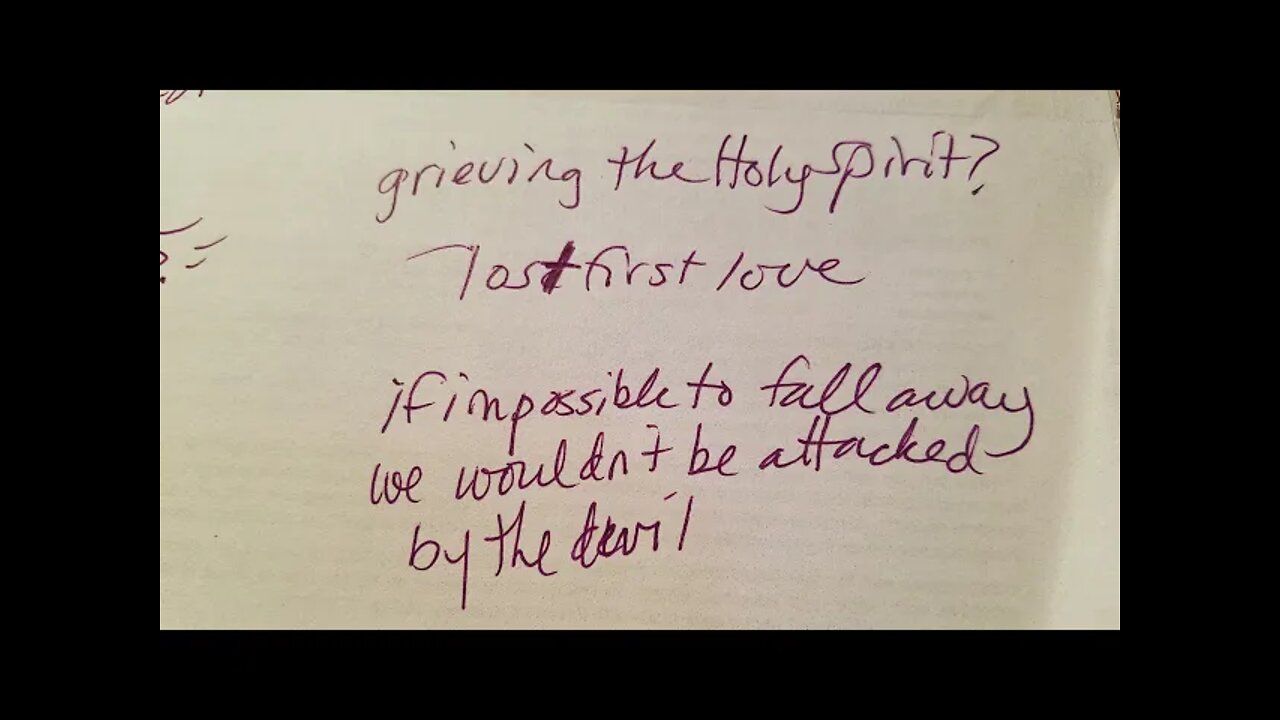 grieving the Holy Spirit?
lost first love
if impossible to fall away
we wouldn't be attacked
by the devil